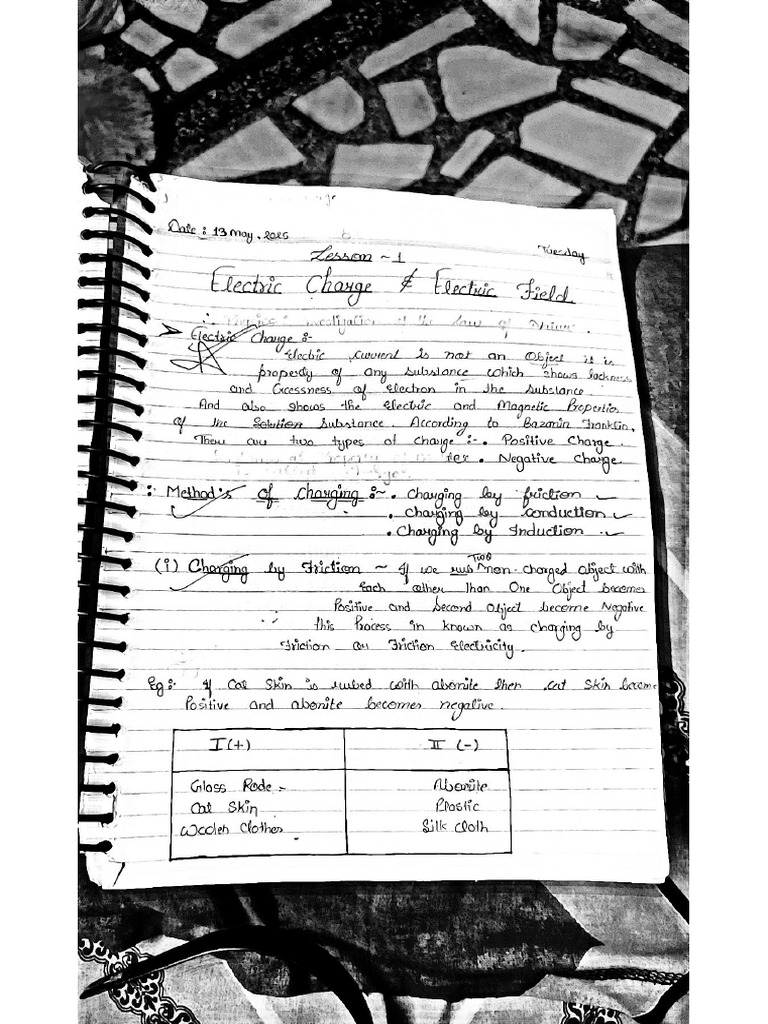 Date : 13 May, 2025
Tuesday
Lesson ~ 1
Electric Charge & Electric Field
investigation of the Law of Nature.
➤ Electric Charge :-
Electric current is not an Object it is
property of any substance which shows lackness
and Excessness of Electron in the substance.
And also shows the Electric and Magnetic Properties
of the Solution substance. According to Bazamin Franklin,
There are two types of charge :- . Positive Charge.
. Negative Charge
: Method's of Charging :~ . Charging by friction ✓
. Charging by conduction ✓
. Charging by Induction .✓
(i) Charging by Friction ~ If we rub Two Non-charged object with
Each other than One Object becomes
Positive and Second Object become Negative
this Process in known as charging by
Friction or Friction Electricity.
Eg:- If Cat Skin is rubed with abonite then cat Skin become
Positive and abonite becomes negative.
I (+) II (-)
Glass Rode Abonite
Cat Skin Plastic
Woolen Clothes Silk Cloth